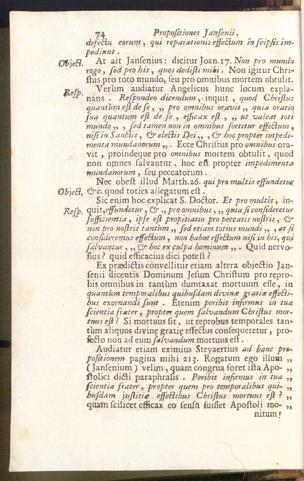 74 Propositiones Jansenii.
defectu eorum, qui reparationis effectum in seipsis im-
pediunt.
Object. At ait Jansenius: dicitur Joan.17. Non pro mundo
rogo, sed pro his, quos dedisti mihi. Non igitur Chri-
stus pro toto mundo, seu pro omnibus mortem obtulit.
Resp. Verùm audiatur Angelicus hunc locum expla-
nans. Respondeo dicendum, inquit, quod Christus
quantum est de se, „ pro omnibus oravit, quia oratio
sua quantum est de se, efficax est, „ ut valeat toti
mundo, „ sed tamen non in omnibus sortitur effectum,
nisi in Sanctis, & electis Dei, „ & hoc propter impedi-
menta mundanorum „. Ecce Christus pro omnibus ora-
vit, proindeque pro omnibus mortem obtulit, quod
non omnes salvantur, hoc est propter impedimenta
mundanorum, seu peccatorum.
Object. Nec obest illud Matth.26. qui pro multis effundetur
&c. quod toties allegatum est.
Resp. Sic enim hoc explicat S. Doctor. Et pro multis, in-
quit, effundetur, & „ pro omnibus, „ quia si consideretur
sufficientia, ipse est propitiatio pro peccatis nostris, &
non pro nostris tantùm „ sed etiam totius mundi, „ at si
consideremus effectum, non habet effectum nisi in his, qui
salvantur, „ & hoc ex culpa hominum „. Quid nervo-
sius? quid efficacius dici potest?
Ex prædictis convellitur etiam altera objectio Jan-
senii dicentis Dominum Jesum Christum pro repro-
bis omnibus in tantùm dumtaxat mortuum esse, in
quantùm temporalibus quibusdam divinæ gratiæ effecti-
bus exornandi sunt. Etenim peribit infirmus in tua
scientia frater, propter quem salvandum Christus mor-
tuus est? Si mortuus sit, ut reprobus temporales tan-
tùm aliquos divinæ gratiæ effectus consequeretur, pro-
fecto non ad eum salvandum mortuus est.
Audiatur etiam eximius Steyaertius ad hanc pro-
positionem pagina mihi 213. Rogatum ego illum „
(Jansenium) velim, quam congrua foret ista Apo- „
stolici dicti paraphrasis. Peribit infirmus in tua „
scientia frater, propter quem pro temporalibus qui- „
busdam justitiæ effectibus Christus mortuus est? „
quam scilicet efficax eo sensu fuisset Apostoli mo- „
nitum?